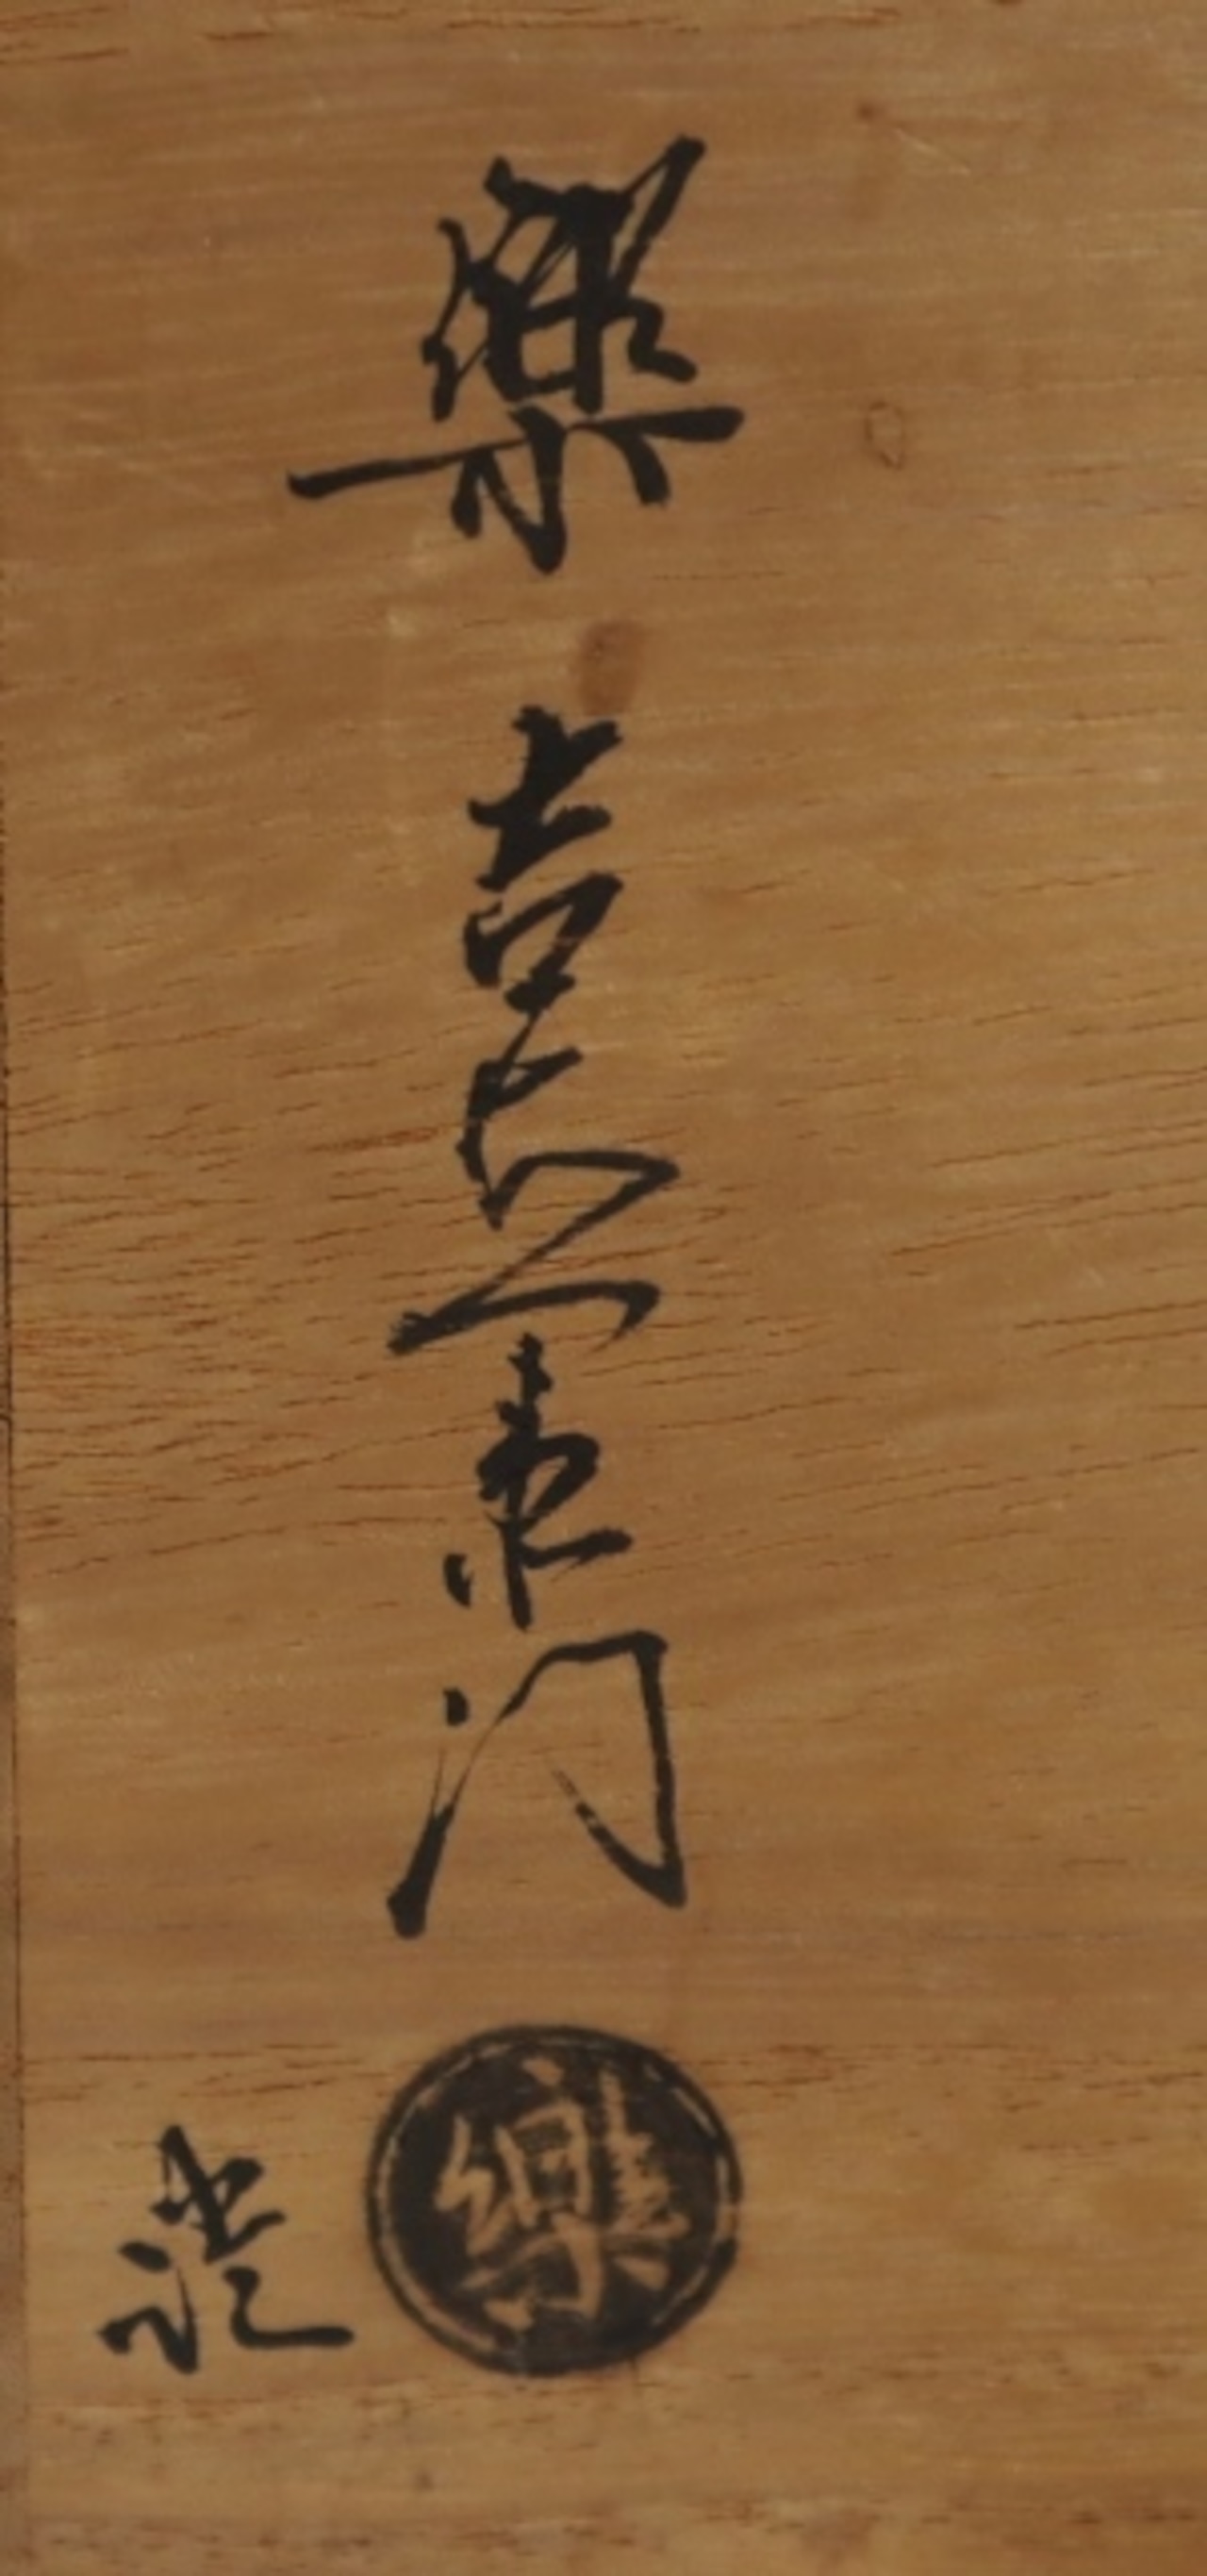 樂 吉左衛門
樂
造